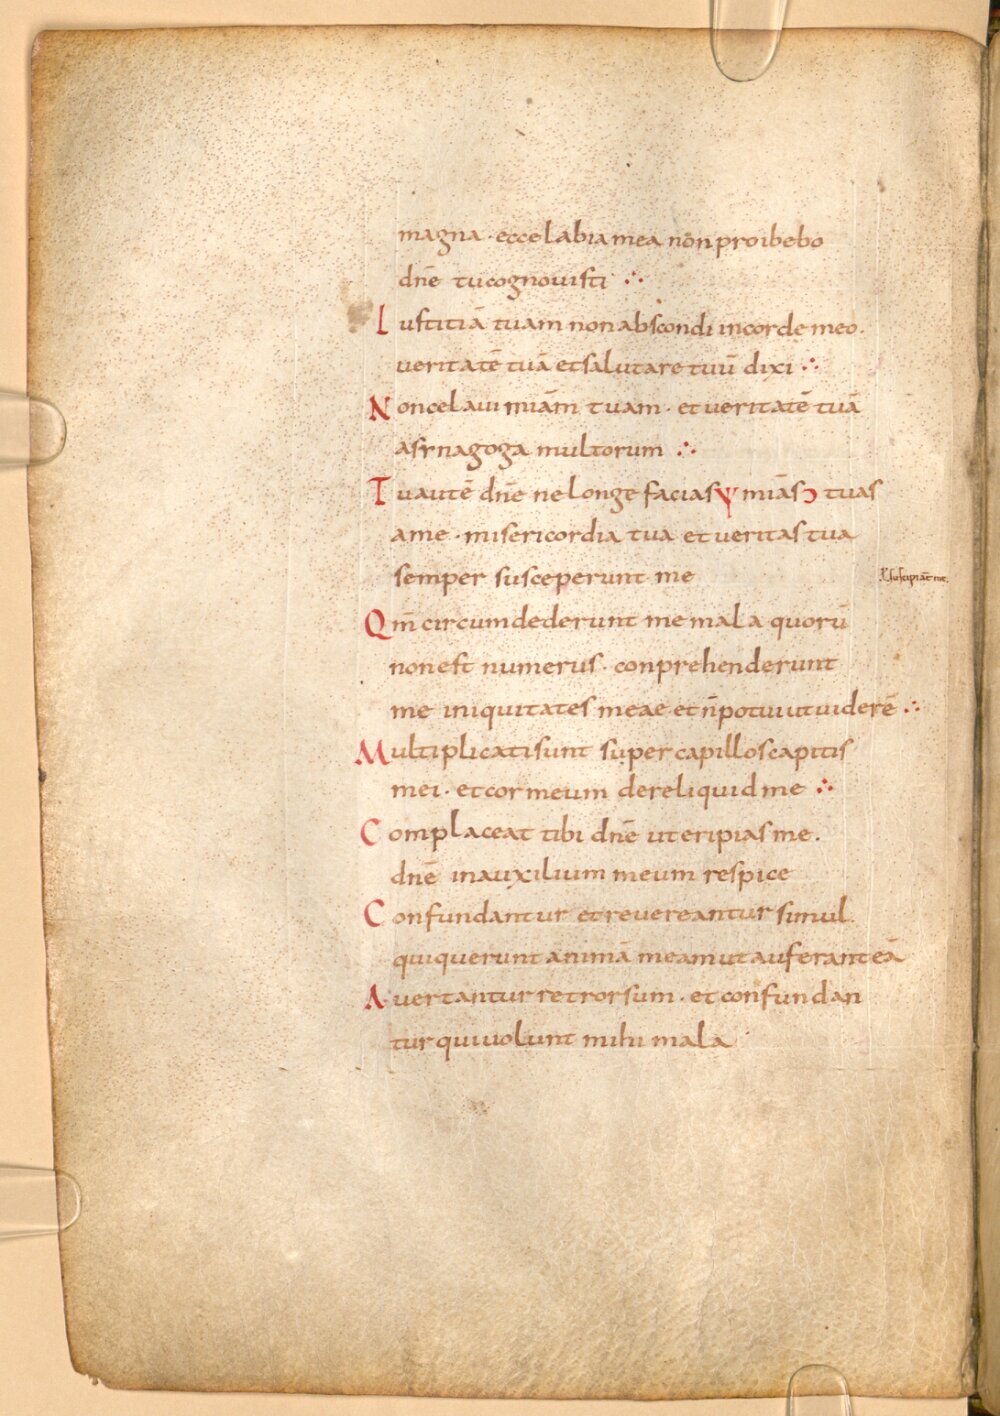 magna · ecce labia mea non proibebo
dnē tu cognouisti ∴
Iustitiā tuam non abscondi in corde meo.
veritatē tuā et salutare tuū dixi ∴
Non celaui miām tuam · et veritatē tuā
a synagoga multorum ∴
Tu autē dnē ne longe facias ѱ miās ɔ tuas
a me · misericordia tua et veritas tua
semper susceperunt me
Qm̄ circumdederunt me mala quorū
non est numerus · conprehenderunt
me iniquitates meae et n̄ potui ut viderē ∴
Multiplicati sunt super capillos capitis
mei · et cor meum dereliquid me ∴
Complaceat tibi dnē ut eripias me.
dnē in auxilium meum respice
Confundantur et revereantur simul.
qui querunt animā meam ut auferant eā
Avertantur retrorsum · et confundan
tur qui uolunt mihi mala